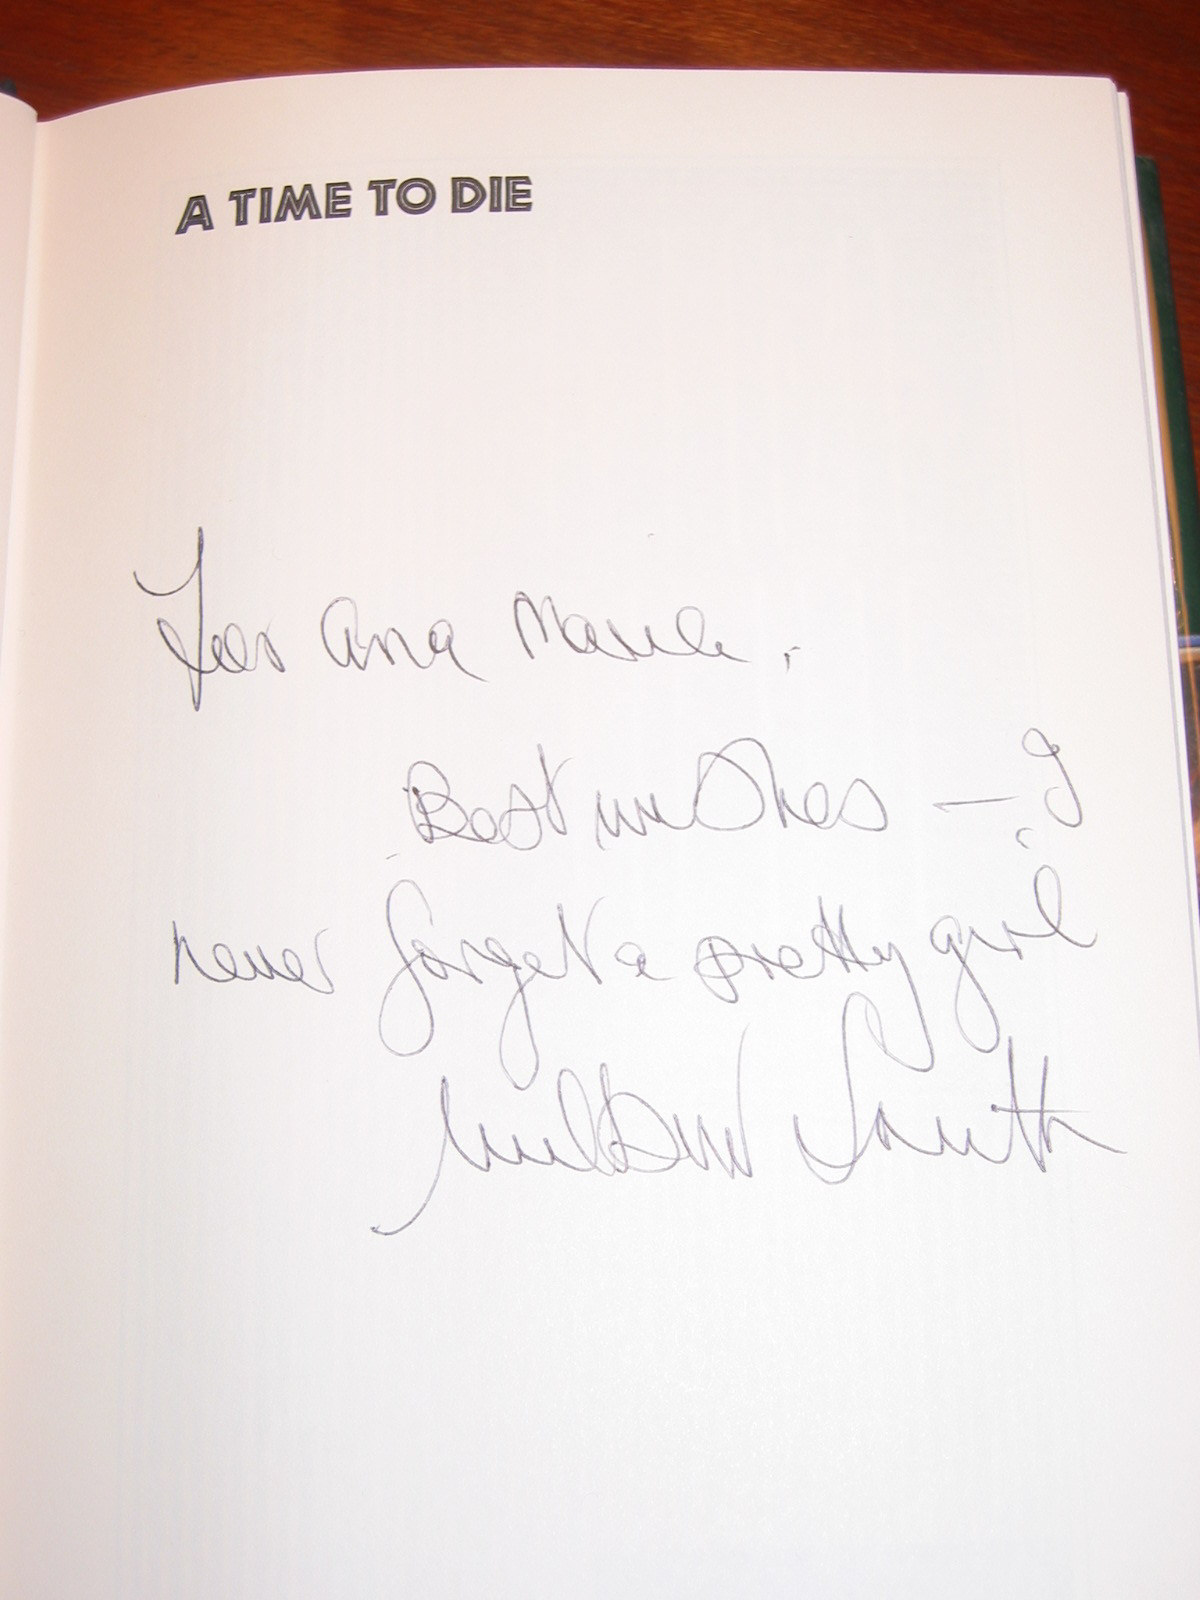 A TIME TO DIE
For Ana Marie.
Best wishes — I
never forget a pretty girl
Wilbur Smith